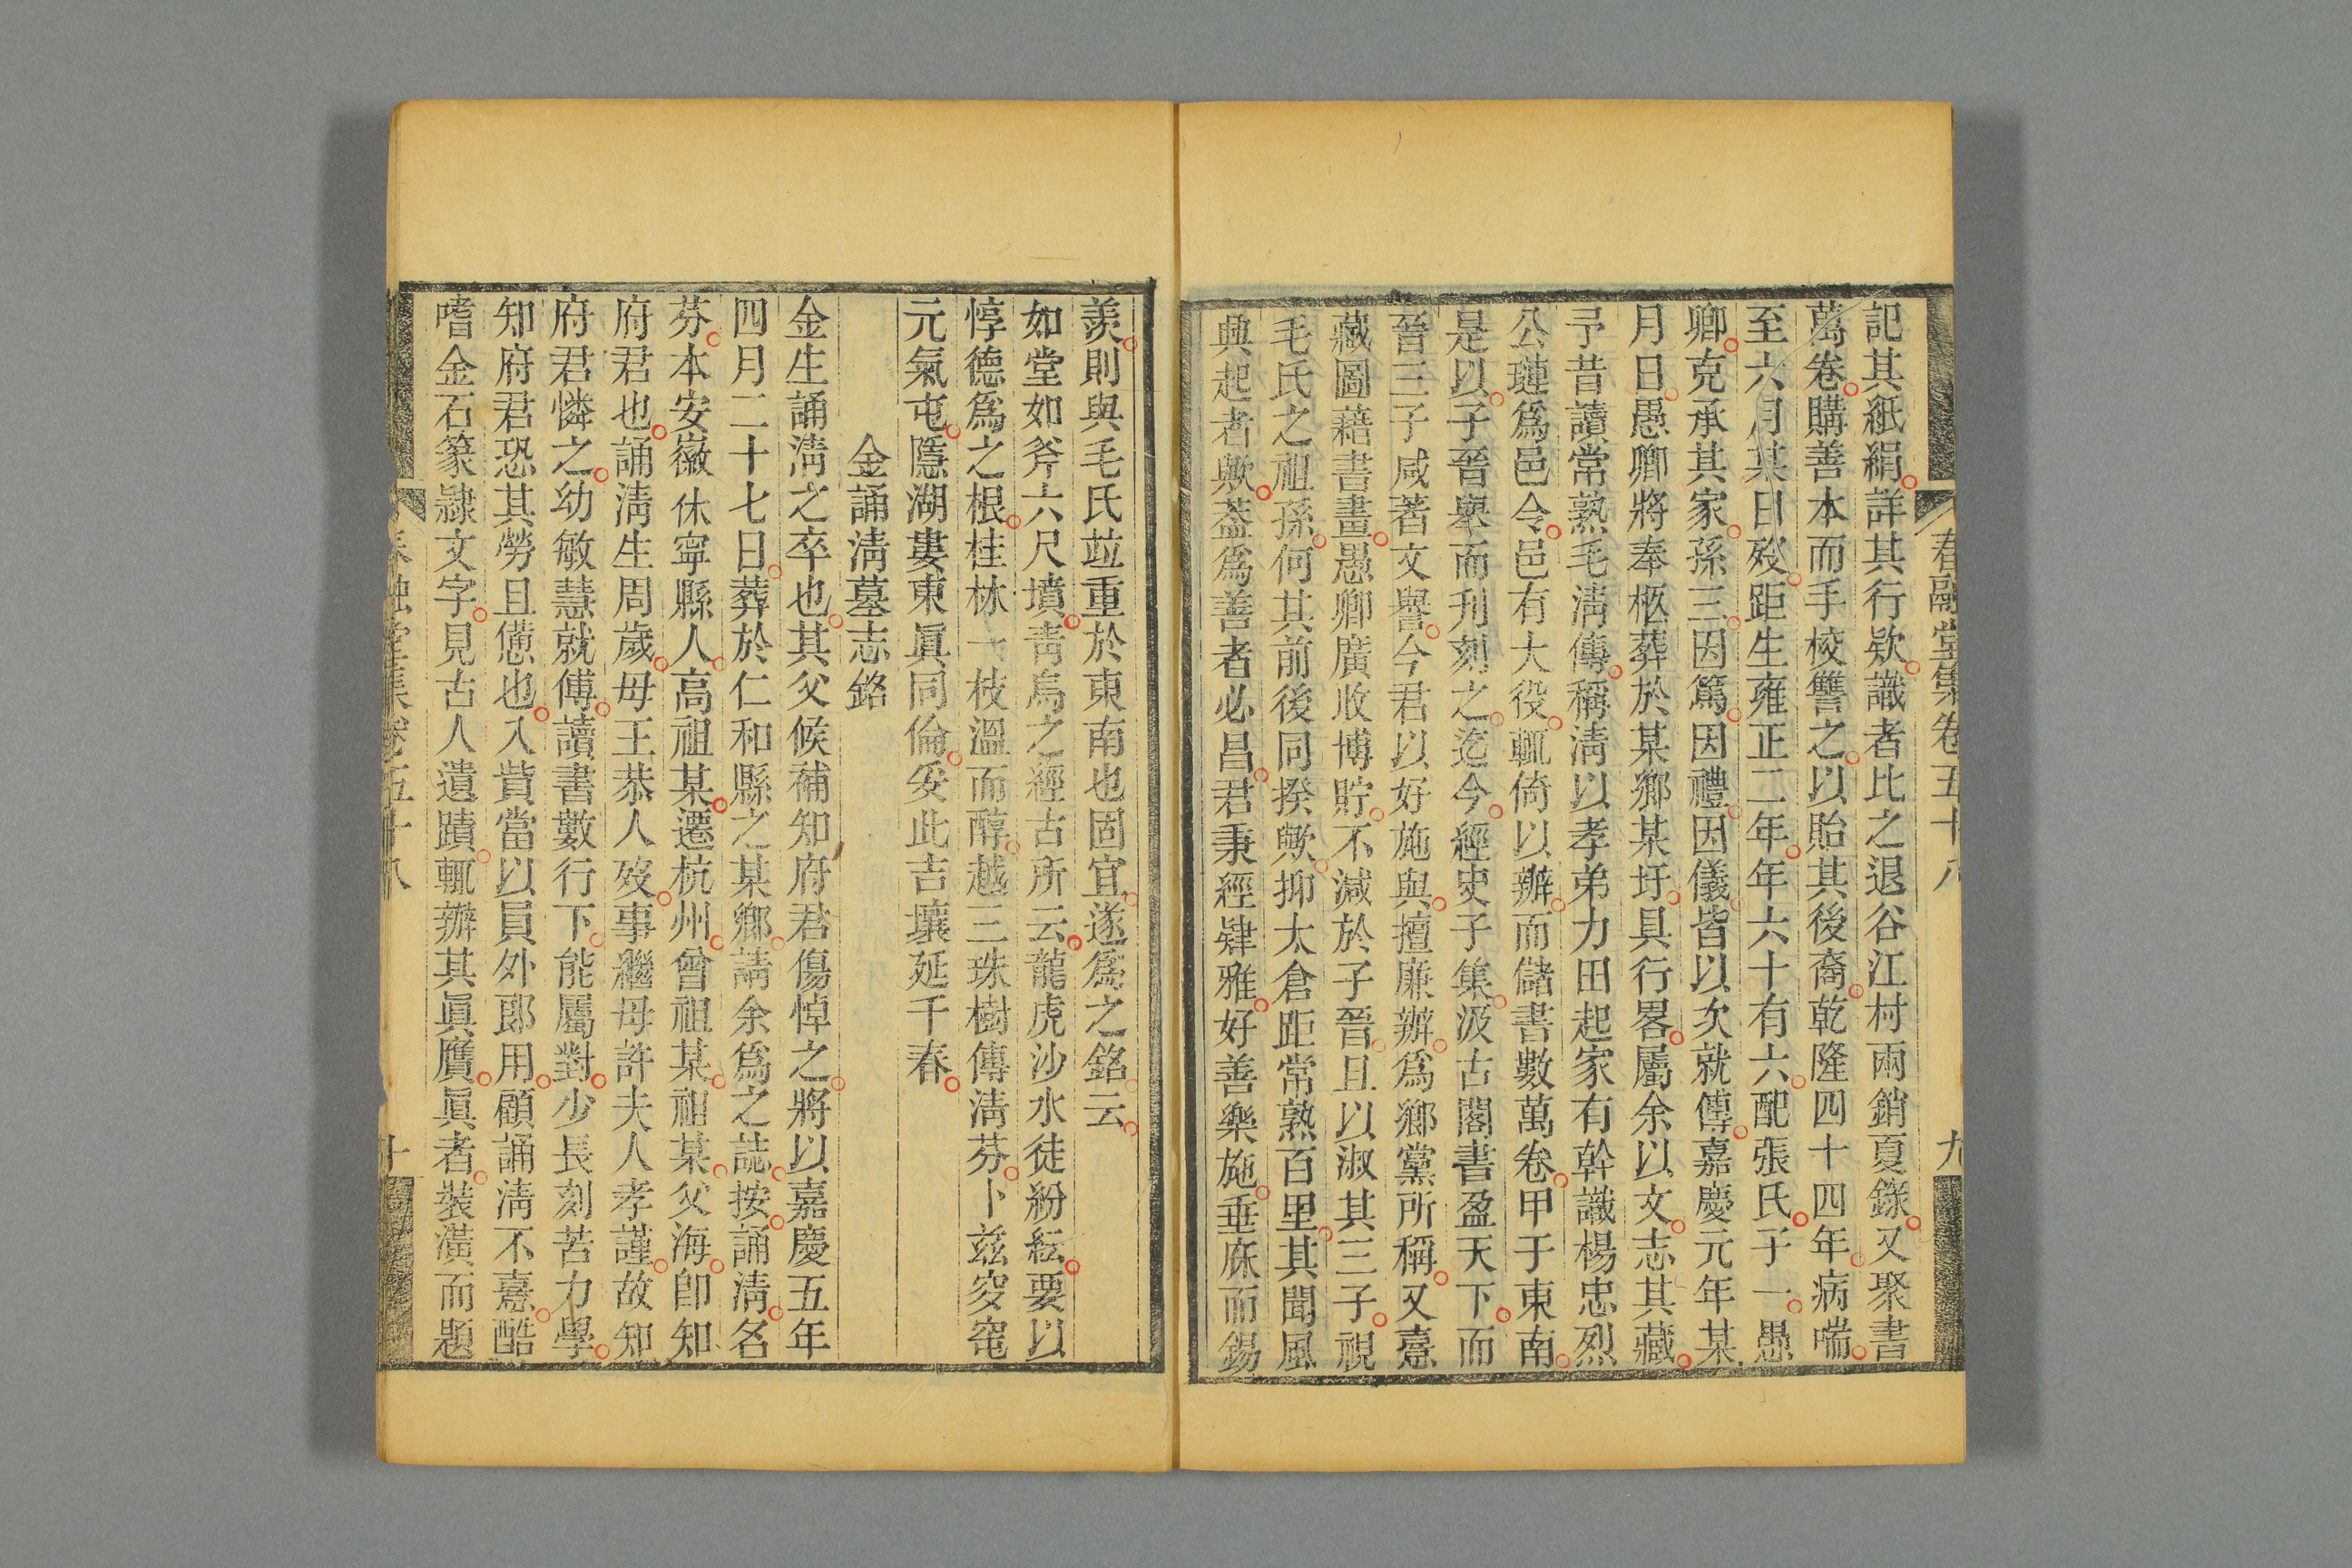 春融堂集卷五十八
九
記其紙絹詳其行欵識者比之退谷江村兩銷夏錄又聚書
萬卷購善本而手校讐之以貽其後裔乾隆四十四年病喘
至六月某日歿距生雍正二年年六十有六配張氏子一愚
卿克承其家孫三因篤因禮因儀皆以次就傅嘉慶元年某
月日愚卿將奉柩葬於某鄉某圩具行畧屬余以文志其藏
予昔讀常熟毛淸傳稱淸以孝弟力田起家有幹識楊忠烈
公漣爲邑令邑有大役輒倚以辦而儲書數萬卷甲于東南
是以子晉舉而刋刻之迄今經史子集汲古閣書盈天下而
晉三子咸著文譽今君以好施與擅廉辦爲鄉黨所稱又憙
藏圖藉書畫愚卿廣收博貯不減於子晉且以淑其三子視
毛氏之祖孫何其前後同揆歟抑太倉距常熟百里其聞風
典起者歟葢爲善者必昌君秉經肄雅好善樂施垂庥而錫
羨則與毛氏竝重於東南也固宜遂爲之銘云
如堂如斧六尺墳靑烏之經古所云龍虎沙水徒紛紜要以
惇德爲之根桂林一枝溫而醇越三珠樹傳淸芬卜兹窀穸
元氣屯隱湖婁東眞同倫妥此吉壤延千春
金誦淸墓志銘
金生誦淸之卒也其父候補知府君傷悼之將以嘉慶五年
四月二十七日葬於仁和縣之某鄉請余爲之誌按誦淸名
芬本安徽休寧縣人高祖某遷杭州曾祖某祖某父海卽知
府君也誦淸生周歲母王恭人歿事繼母許夫人孝謹故知
府君憐之幼敏慧就傅讀書數行下能屬對少長刻苦力學
知府君恐其勞且憊也入貲當以員外郎用顧誦淸不憙酷
嗜金石篆隷文字見古人遺蹟輒辦其眞贗眞者裝潢而題
春融堂集卷五十八
十